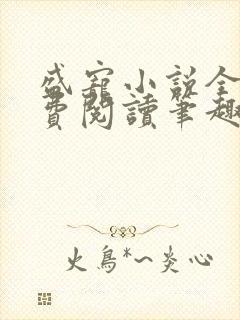 盛寵小說全
費閱讀筆趣
火鳥*~炎心